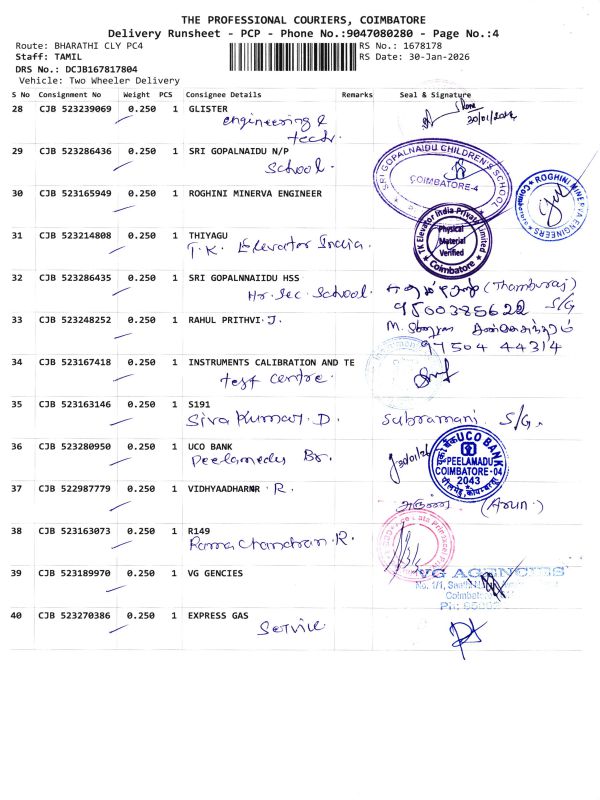 THE PROFESSIONAL COURIERS, COIMBATORE
Delivery Runsheet - PCP - Phone No.:9047080280 - Page No.:4
Route: BHARATHI CLY PC4 RS No.: 1678178
Staff: TAMIL RS Date: 30-Jan-2026
DRS No.: DCJB167817804
Vehicle: Two Wheeler Delivery
S No Consignment No Weight PCS Consignee Details Remarks Seal & Signature
28 CJB 523239069 0.250 1 GLISTER
engineering & tech. 30/01/2026
29 CJB 523286436 0.250 1 SRI GOPALNAIDU N/P
School. SRI GOPALNAIDU CHILDREN'S SCHOOL COIMBATORE-4
30 CJB 523165949 0.250 1 ROGHINI MINERVA ENGINEER
ROGHINI MINERVA ENGINEERS Coimbatore
31 CJB 523214808 0.250 1 THIYAGU
T.K. Elevator India. TK Elevator India Private Limited Physical Material Verified Coimbatore
32 CJB 523286435 0.250 1 SRI GOPALNNAIIDU HSS
Hr. Sec. School. (Thamburaj)
9500385622 S/G
33 CJB 523248252 0.250 1 RAHUL PRITHVI.J.
M.
97504 44314
34 CJB 523167418 0.250 1 INSTRUMENTS CALIBRATION AND TE
test centre.
35 CJB 523163146 0.250 1 S191
Siva Kumar. D. Subramani S/G.
36 CJB 523280950 0.250 1 UCO BANK
Peelamedu Br. 30/01/26 UCO BANK PEELAMADU COIMBATORE-04 2043
37 CJB 522987779 0.250 1 VIDHYAADHARNR . R.
(Arun.)
38 CJB 523163073 0.250 1 R149
Rama Chandran. R.
39 CJB 523189970 0.250 1 VG GENCIES
VG AGENCIES
No. 1/1,
40 CJB 523270386 0.250 1 EXPRESS GAS
Service